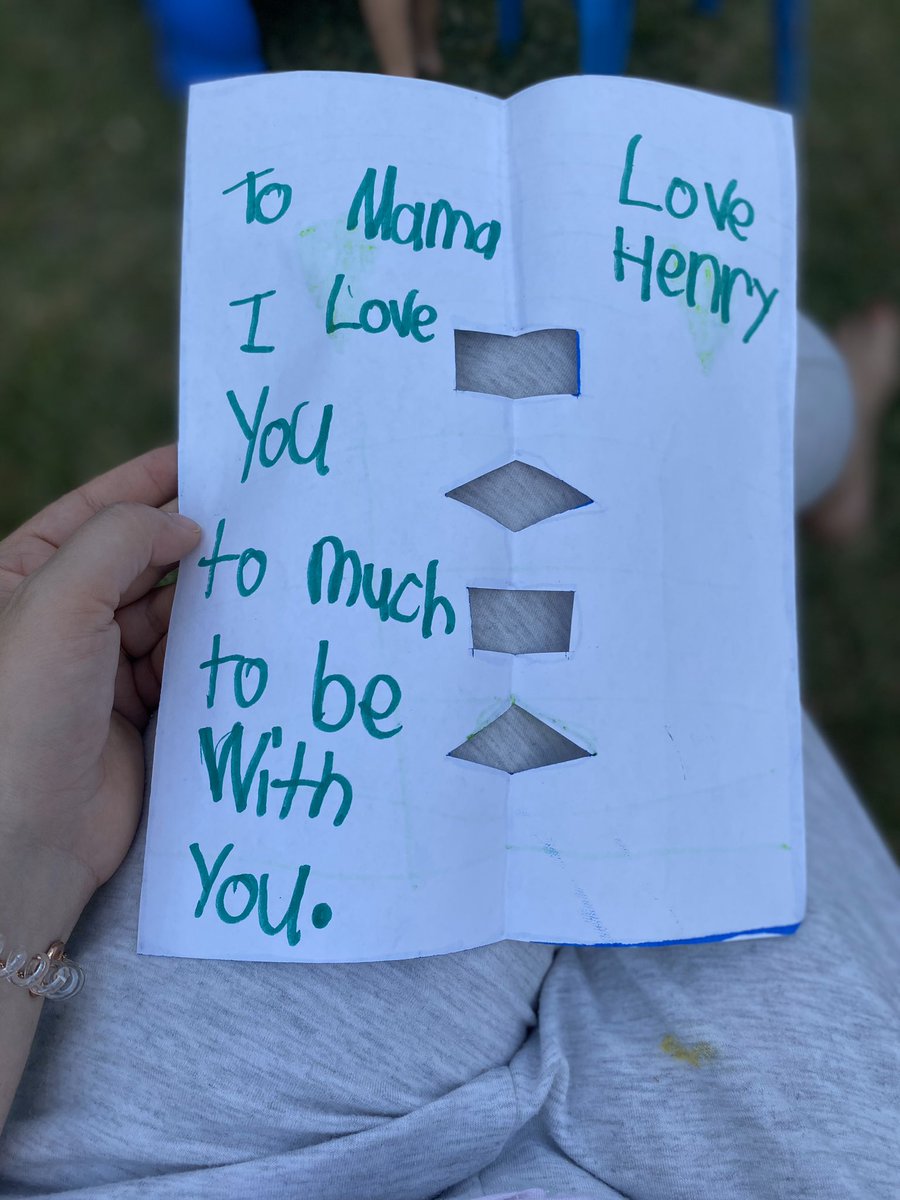 To Mama
I Love
You
to much
to be
With
You.
Love
Henry